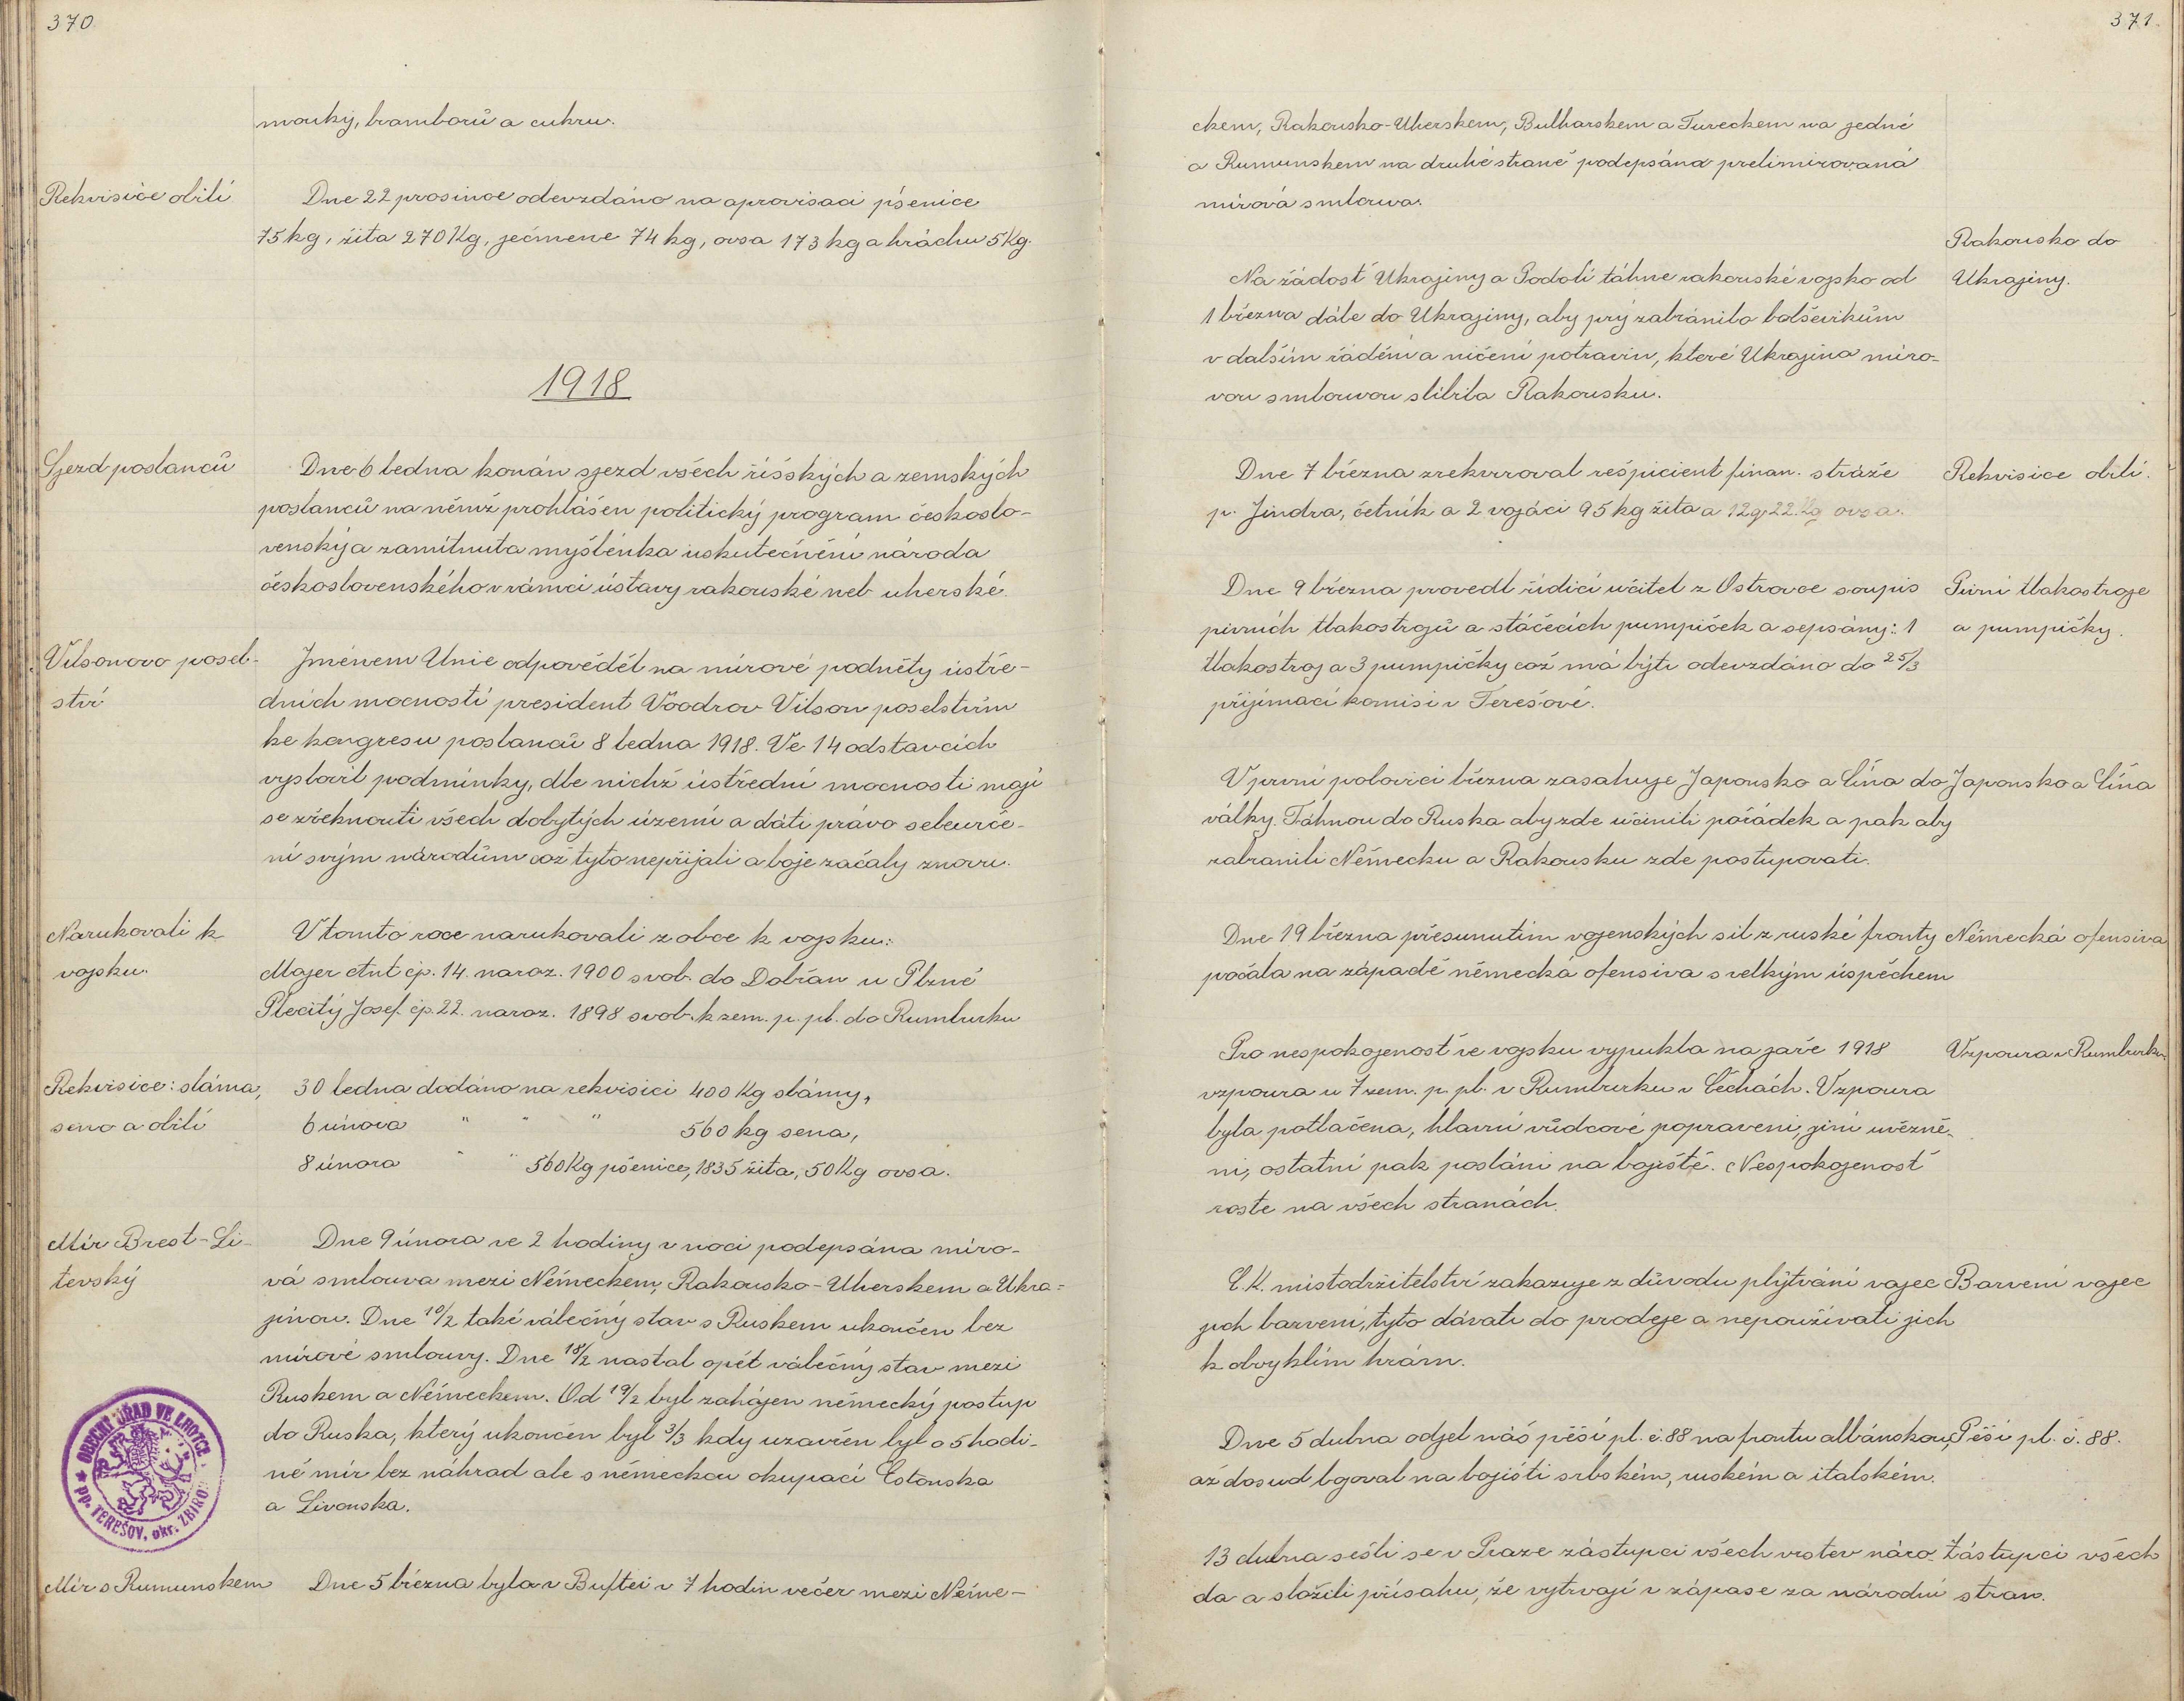 370.
mouky, bramborů a cukru.
Rekvisice obilí
Dne 22 prosince odevzdáno na aprovisaci pšenice
75 kg, žita 270 Kg, ječmene 74 kg, ovsa 173 kg a hráchu 5 Kg.
1918
Sjezd poslanců
Dne 6 ledna konán sjezd všech říšských a zemských
poslanců na němž prohlášen politický program českoslo-
venský a zamítnuta myšlénka uskutečnění národa
československého v rámci ústavy rakouské neb uherské.
Vilsonovo posel-
ství
Jménem Unie odpověděl na mírové podněty ústře-
dních mocností president Voodrov Vilson poselstvím
ke kongresu poslanců 8 ledna 1918. Ve 14 odstavcích
vyslovil podmínky, dle nichž ústřední mocnosti mají
se zřeknouti všech dobytých území a dáti právo sebeurče-
ní svým národům což tyto nepřijali a boje začaly znovu.
Narukovali k
vojsku.
V tomto roce narukovali z obce k vojsku:
Majer Ant čp. 14. naroz. 1900 svob. do Dobřan u Plzně
Plecitý Josef. čp. 22. naroz. 1898 svob. k zem. p. pl. do Rumburku
Rekvisice: sláma,
seno a obilí
30 ledna dodáno na rekvisici 400 Kg slámy,
6 února " " " 560 kg sena,
8 února " " 560 Kg pšenice, 1835 žita, 50 Kg ovsa.
Mír Brest-Li-
tevský
Dne 9 února ve 2 hodiny v noci podepsána míro-
vá smlouva mezi Německem, Rakousko-Uherskem a Ukra=
jinou. Dne 10/2 také válečný stav s Ruskem ukončen bez
mírové smlouvy. Dne 18/2 nastal opět válečný stav mezi
Ruskem a Německem. Od 19/2 byl zahájen německý postup
do Ruska, který ukončen byl 3/3 kdy uzavřen byl o 5 hodi-
ně mír bez náhrad ale s německou okupací Estonska
a Livonska.
OBECNÍ ÚŘAD VE LHOTCE
pp. TEREŠOV, okr. ZBIROH
Mír s Rumunskem
Dne 5 března byla v Buftei v 7 hodin večer mezi Něme-
371.
ckem, Rakousko-Uherskem, Bulharskem a Tureckem na jedné
a Rumunskem na druhé straně podepsána prelimirovaná
mírová smlouva.
Rakousko do
Ukrajiny.
Na žádosť Ukrajiny a Podolí táhne rakouské vojsko od
1 března dále do Ukrajiny, aby prý zabránilo bolševikům
v dalším řádění a ničení potravin, které Ukrajina míro-
vou smlouvou slíbila Rakousku.
Dne 7 března zrekviroval respicient finan. stráže
p. Jindra, četník a 2 vojáci 95 kg žita a 12q 22 Kg ovsa.
Rekvisice obilí.
Dne 9 března provedl řídící učitel z Ostrovce soupis
pivních tlakostrojů a stáčecích pumpiček a sepsány: 1
tlakostroj a 3 pumpičky což má býti odevzdáno do 25/3
přijímací komisi v Terešově.
Pivní tlakostroje
a pumpičky.
V první polovici března zasahuje Japonsko a Čína do
války. Táhnou do Ruska aby zde učinili pořádek a pak aby
zabranili Německu a Rakousku zde postupovati.
Japonsko a Čína
Dne 19 března přesunutím vojenských sil z ruské fronty
počala na západě německá ofensiva s velkým úspěchem
Německá ofensiva
Pro nespokojenosť ve vojsku vypukla na jaře 1918
vzpoura u 7 zem. p. pl. v Rumburku v Čechách. Vzpoura
byla potlačena, hlavní vůdcové popraveni, jiní uvězně-
ni, ostatní pak posláni na bojiště. Nespokojenosť
roste na všech stranách.
Vzpoura v Rumburku
C. K. mistodržitelství zakazuje z důvodu plýtvání vajec
jich barvení, tyto dávati do prodeje a nepoužívati jich
k obvyklím hrám.
Barvení vajec
Dne 5 dubna odjel náš pěší pl. č. 88 na frontu albánskou,
až dosud bojoval na bojišti srbském, ruském a italském.
Pěší pl. č. 88.
13 dubna sešli se v Praze zástupci všech vrstev náro-
da a složili přísahu, že vytrvají v zápase za národní
Zástupci všech
stran.